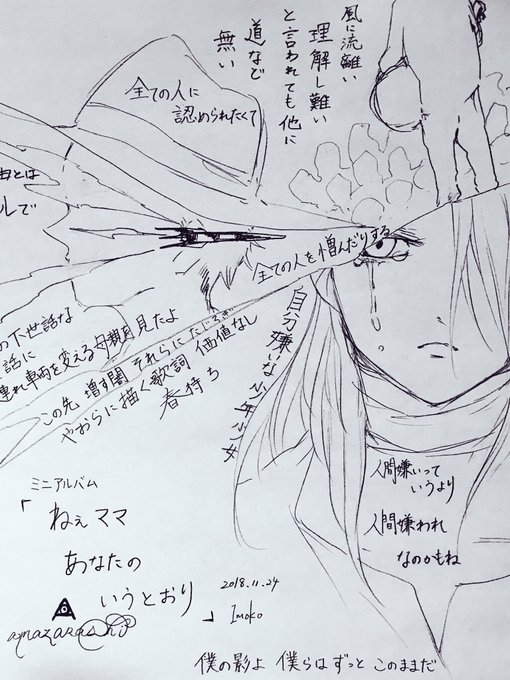 風に流離い
理解し難い
と言われても他に
道など
無い
全ての人に
認められたくて
由とは
ルで
全ての人を憎んだりする
自分嫌いな少年少女
の下世話な
話に
連れ車両を変える母親を見たよ
この先 増す闇 それらにたじろぎ
やおらに描く歌詞 価値なし
春待ち
人間嫌いって
いうより
人間嫌われ
なのかもね
ミニアルバム
「ねぇママ
あなたの
いうとおり」
amazarashi
2018.11.24
Imoko
僕の影よ 僕らはずっと このままだ